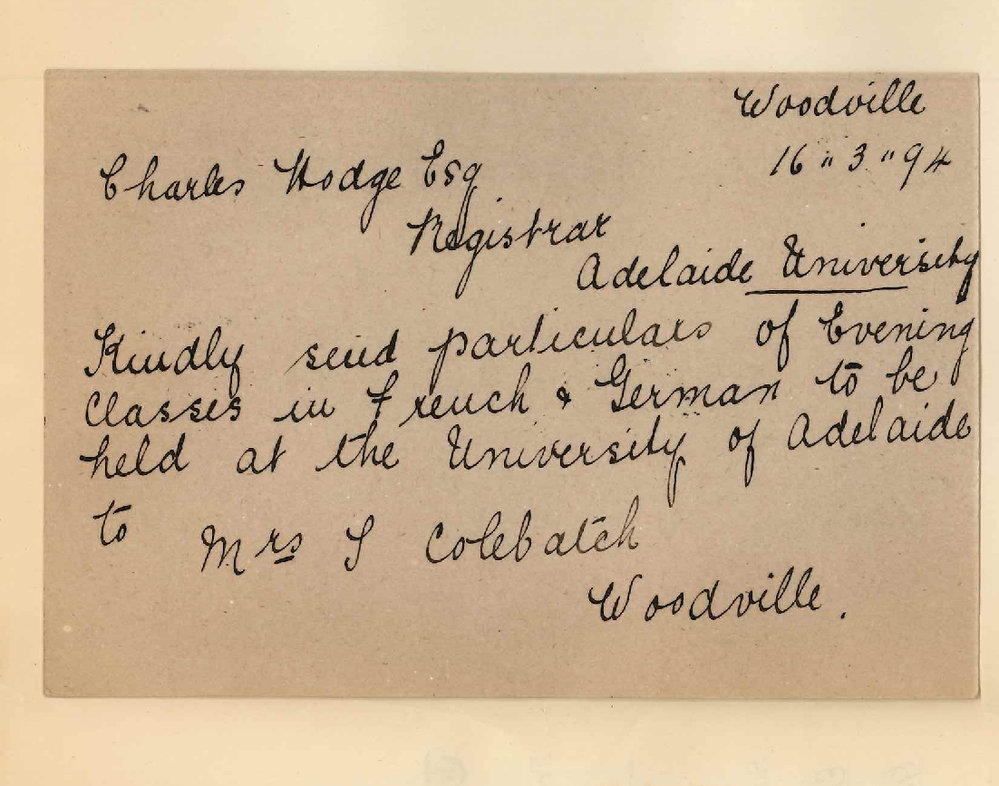 Woodville
16 " 3 " 94
Charles Hodge Esq
Registrar
Adelaide University
Kindly send particulars of Evening
Classes in French & German to be
held at the University of Adelaide
to
Mrs S Colebatch
Woodville.